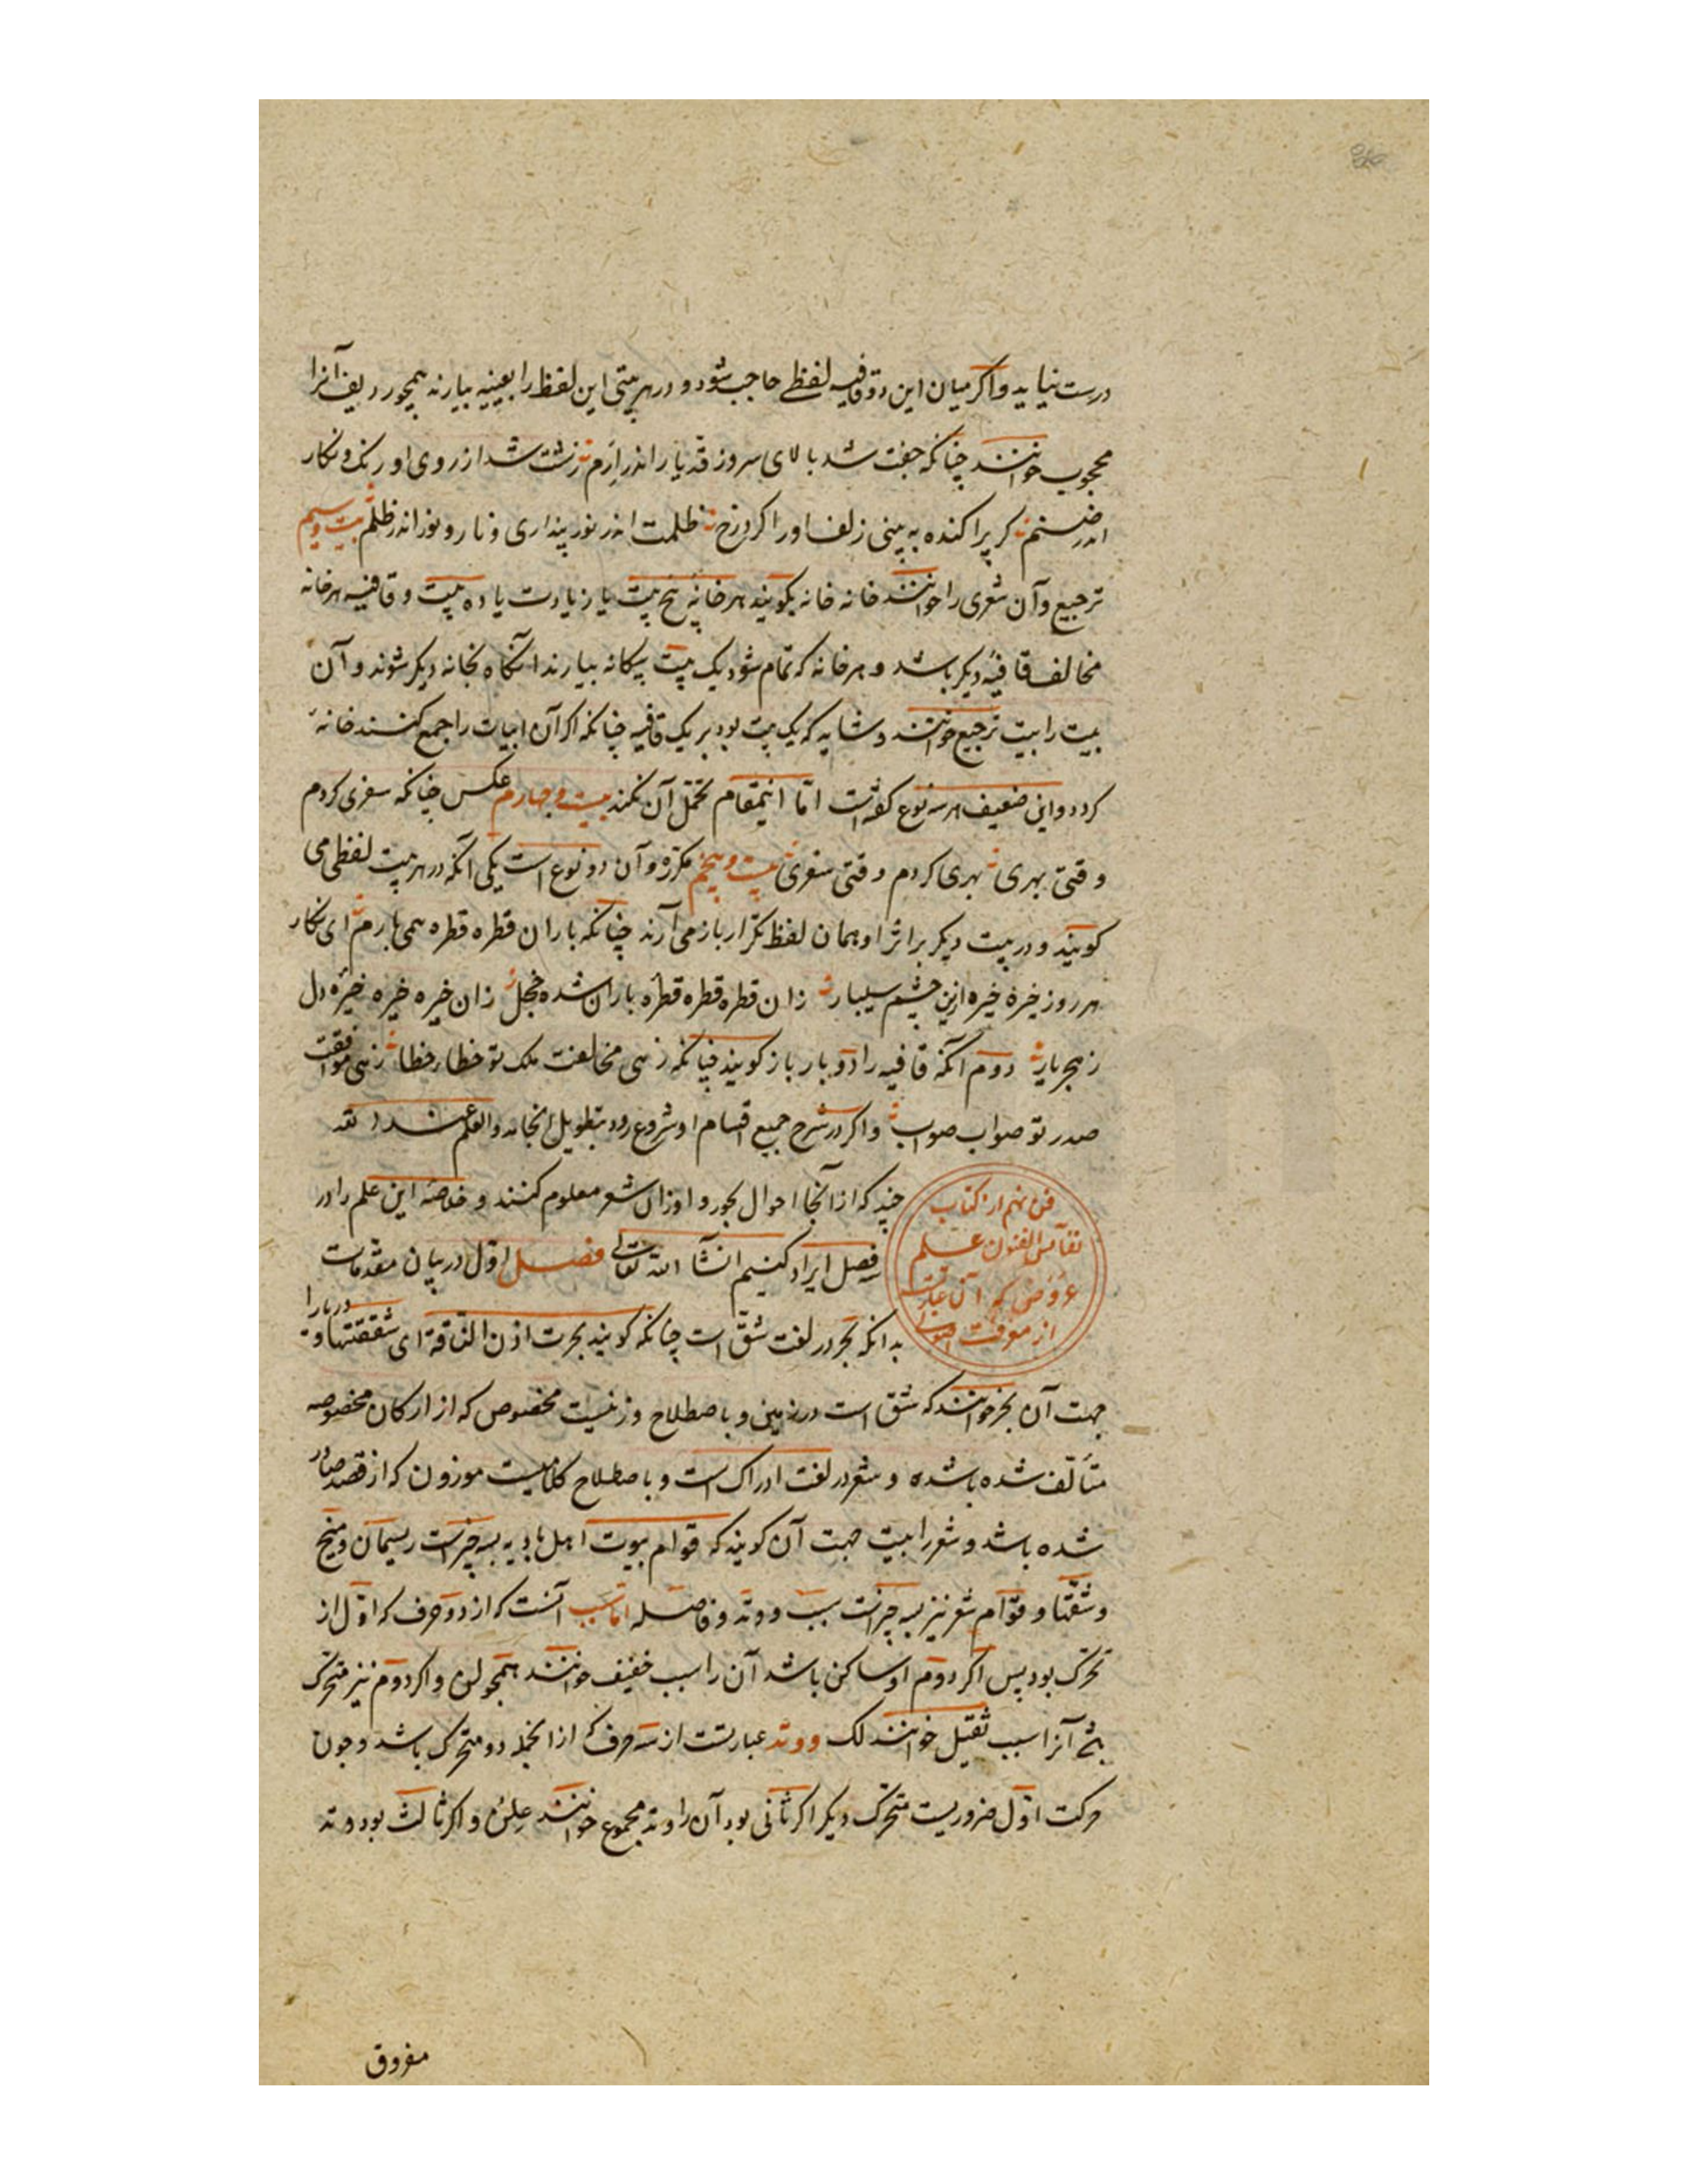 درست نیاید و اکر میان این دو قافیه لفظی حاجب شود و در هر بیتی این لفظ را بعینه بیارند همچو ردیف آنرا
محجوب خوانند چنانکه جفت شد بالای سرو زقد یار اندر ارم زشت شد از روی او رنک و نکار
اندر صنم کر پراکنده به بینی زلف او را کرد رخ ظلمت اندر نور پنداری و نار و نور اندر ظلم بیت و سیم
ترجیع و آن شعری را خوانند خانه خانه بکویند هر خانهٔ پنج بیت یا زیادت یا ده بیت و قافیه هر خانه
مخالف قافیهٔ دیکر باشد و هر خانه که تمام شود یک بیت بیکانه بیارند آنکاه بخانه دیکر شوند و آن
بیت را بیت ترجیع خوانند و شاید که یک بیت بود بر یک قافیه چنانکه اکر آن ابیات را جمع کنند خانهٔ
کردد و این ضعیف هر سه نوع کفته است امّا اینمقام تحمّل آن نکند بیست و چهارم عکس چنانکه سفری کردم
وقتی بهری بهری کردم وقتی سفری بیت و پنجم مکرّر و آن دو نوع است یکی آنکه در هر بیت لفظی می
کویند و در بیت دیکر بر اثر او همان لفظ مکرّر باز می آرند چنانکه باران قطره قطره همی بارم ای نکار
هر روز خیره خیره ازین چشم سیلبار زان قطره قطره قطره باران شده خجل زان خیره خیره خیره دل
ز هجر یار دوم آنکه قافیه را دو بار باز کویند چنانکه زهی مخالفت ملک تو خطا خطا زهی موافقت
صدر تو صواب صواب و اکر در شرح جمیع اقسام او شروع رود بتطویل انجامد و العلم عند الله
چند که از آنجا احوال بحور و اوزان شعر معلوم کنند و خلاصهٔ این علم را در
فن نهم از کتاب
نفائس الفنون علم
عروض که آن عبارتست
از معرفت
سه فصل ایراد کنیم انشآ الله تعالی فصل اول در بیان مقدمات
بدانکه بحر در لغت شق است چنانکه کویند بحرت اذن الناقة ای شققتها و دریا را
جهت آن بحر خوانند که شق است در زمین و باصطلاح وزنیست مخصوص که از ارکان مخصوصه
متألّف شده باشد و شعر در لغت ادراک است و باصطلاح کلامیست موزون که از قصد صادر
شده باشد و شعر را بیت جهت آن کویند که قوام بیوت اهل بادیه بسه چیزست ریسمان و میخ
و شقّتها و قوام شعر نیز بسه چیزاست سبب و وتد و فاصله اما سبب آنست که از دو حرف که اوّل از
تحرّک بود پس اکر دوم او ساکن باشد آن را سبب خفیف خوانند همچو لن و اکر دوم نیز متحرّک
باشد آنرا سبب ثقیل خوانند لک و وتد عبارتست از سه حرف که از انجمله دو متحرّک باشد و چون
حرکت اوّل ضروریست متحرّک دیکر اکر ثانی بود آن را وتد مجموع خوانند علن و اکر ثالث بود وتد
مفروق